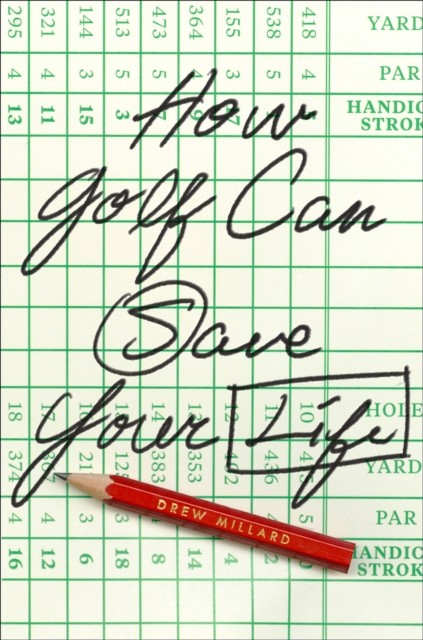 295 321 144 473 364 155 538 418 YARD
4 4 3 5 5 4 3 5 4 PAR
13 11 15 3 HANDIC
STROK
How
Golf Can
Save
Your Life
18 17 14 11 10 HOLE
374 383 353 436 YARD
4 4 3 PAR
16 12 6 18 8 14 4 2 HANDIC
STROK
DREW MILLARD